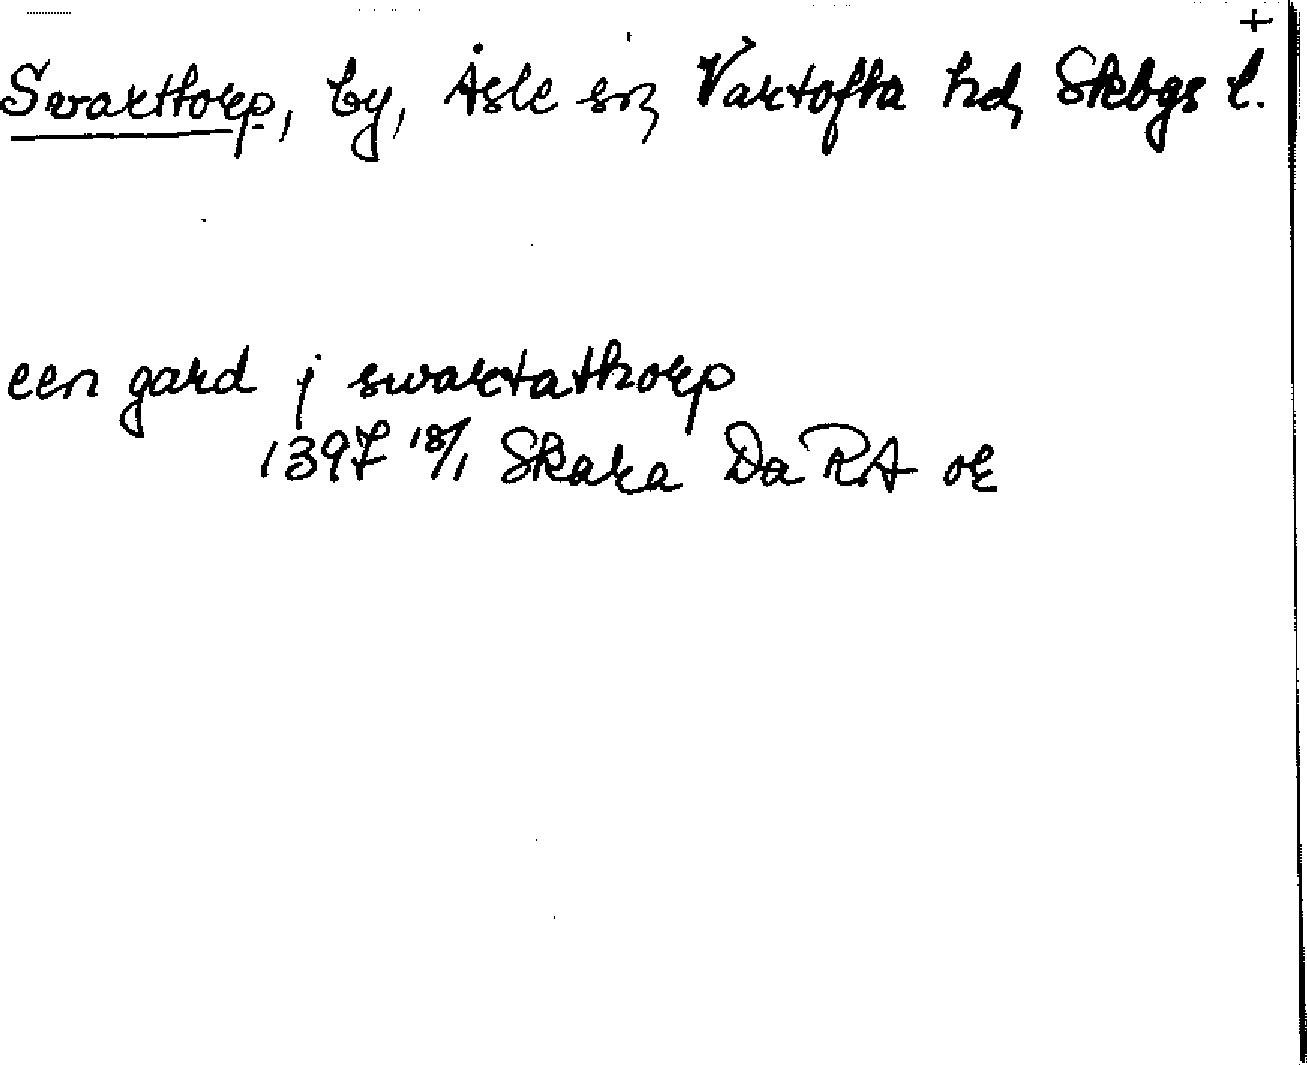 +
Svarttorp, by, Åsle sn, Vartofta hd, Skbgs l.
een gard j swartathorp
1397 18/1 Skara Da RA or